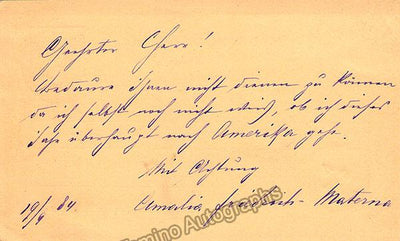 Geehrter Herr!
Bedaure Ihnen nicht dienen zu können
da ich selbst noch nicht weiß, ob ich dieses
Jahr überhaupt nach Amerika gehe.
Mit Achtung
19/6 84. Amalia Friedrich-Materna
Tamino Autographs